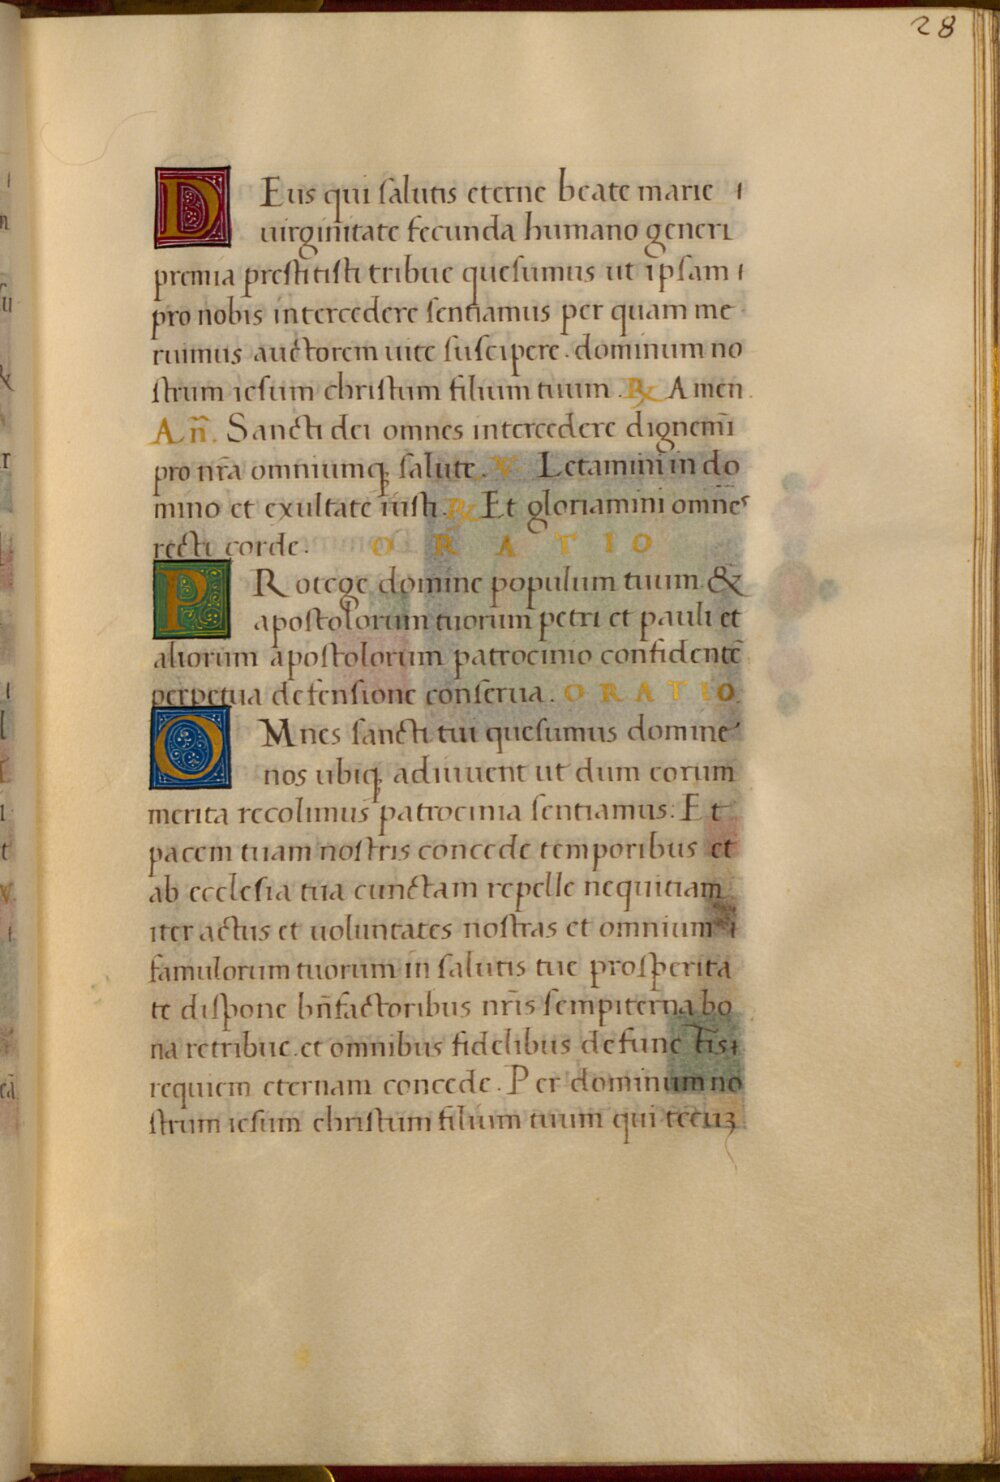 28
DEus qui salutis eterne beate marie
uirginitate fecunda humano generi
premia prestitisti tribue quesumus ut ipsam
pro nobis intercedere sentiamus per quam me
ruimus auctorem uite suscipere. dominum no
strum iesum christum filium tuum. ℞ Amen.
An̄. Sancti dei omnes intercedere dignemī
pro nr̄a omniumqꝫ salute. V Letamini in do
mino et exultate iusti. ℞ Et gloriamini omnes
recti corde. ORATIO
PRotege domine populum tuum &
apostolorum tuorum petri et pauli et
aliorum apostolorum patrocinio confidentē
perpetua defensione conserua. ORATIO
OMnes sancti tui quesumus domine
nos ubiqꝫ adiuuent ut dum eorum
merita recolimus patrocinia sentiamus. Et
pacem tuam nostris concede temporibus et
ab ecclesia tua cunctam repelle nequitiam
iter actus et uoluntates nostras et omnium
famulorum tuorum in salutis tue prosperita
te dispone bn̄factoribus nr̄is sempiterna bo
na retribue. et omnibus fidelibus defunctis
requiem eternam concede. Per dominum no
strum iesum christum filium tuum qui tecuꝫ